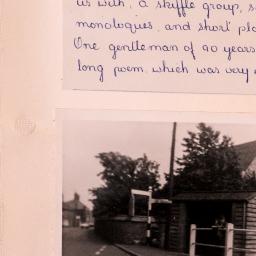 us with, a skiffle group, s
monologues, and short pla
One gentleman of 90 years
long poem, which was very